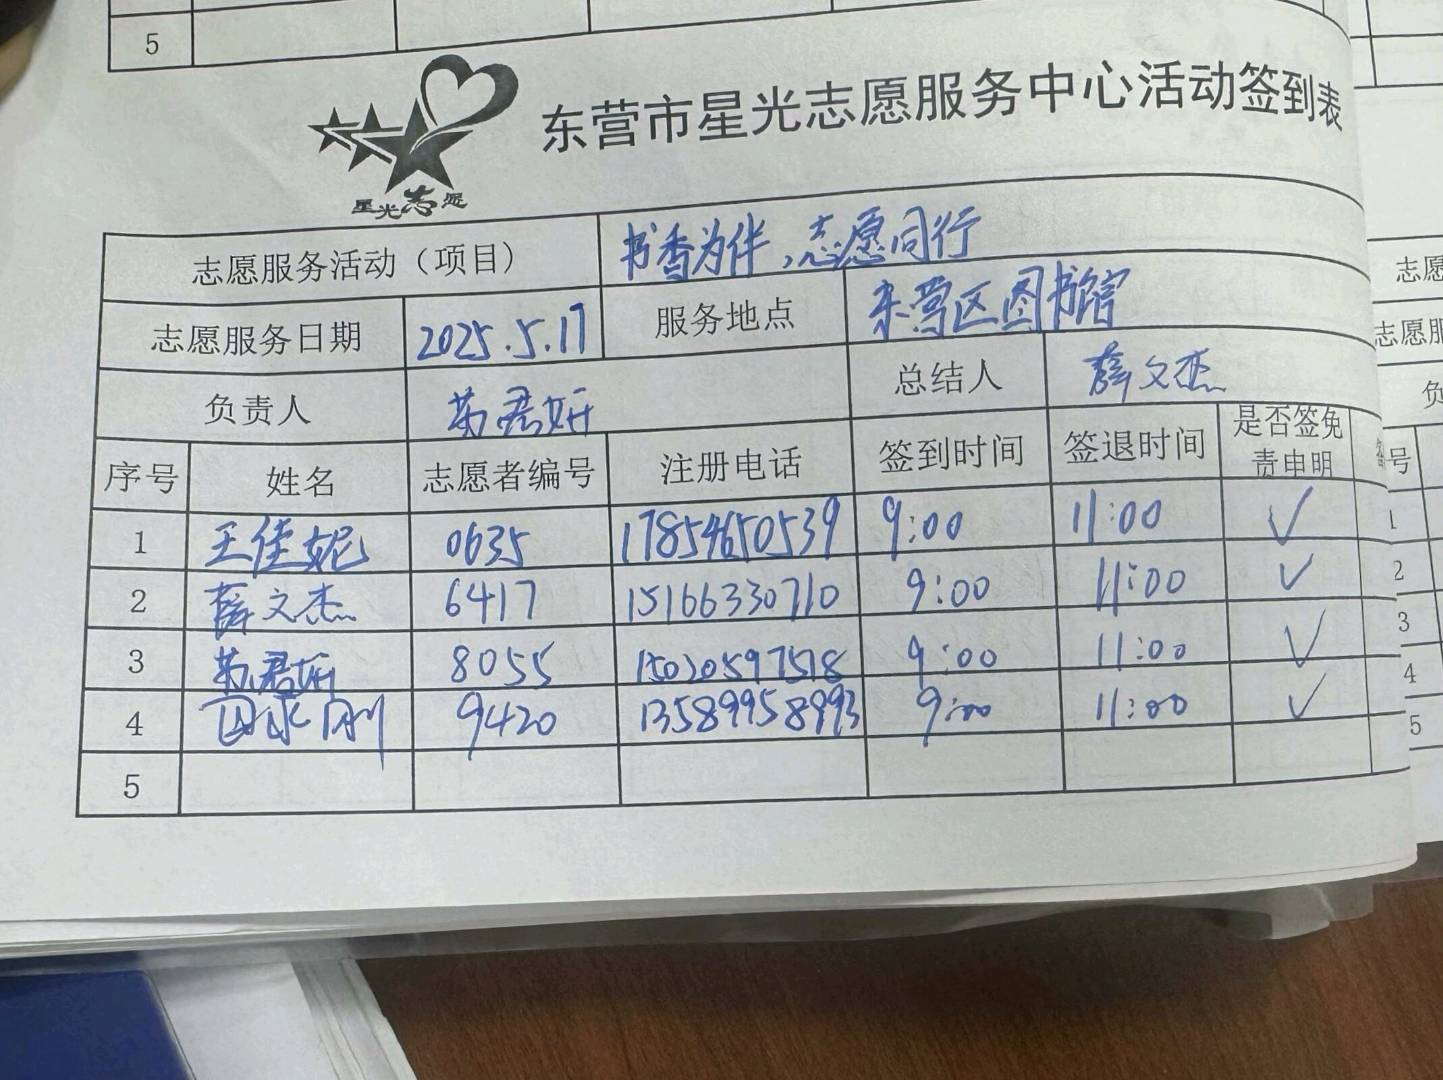 5
东营市星光志愿服务中心活动签到表
星光志愿
志愿服务活动（项目） 书香为伴,志愿同行
志愿服务日期 2025.5.17 服务地点 东营区图书馆
负责人 君妍 总结人 薛文杰
序号 姓名 志愿者编号 注册电话 签到时间 签退时间 是否签免责申明
1 王佳妮 0635 17854650539 9:00 11:00 ✓
2 薛文杰 6417 15166330710 9:00 11:00 ✓
3 君妍 8055 15020597518 9:00 11:00 ✓
4 9420 13589958993 9:00 11:00 ✓
5
志愿
志愿服
负
号
1
2
3
4
5